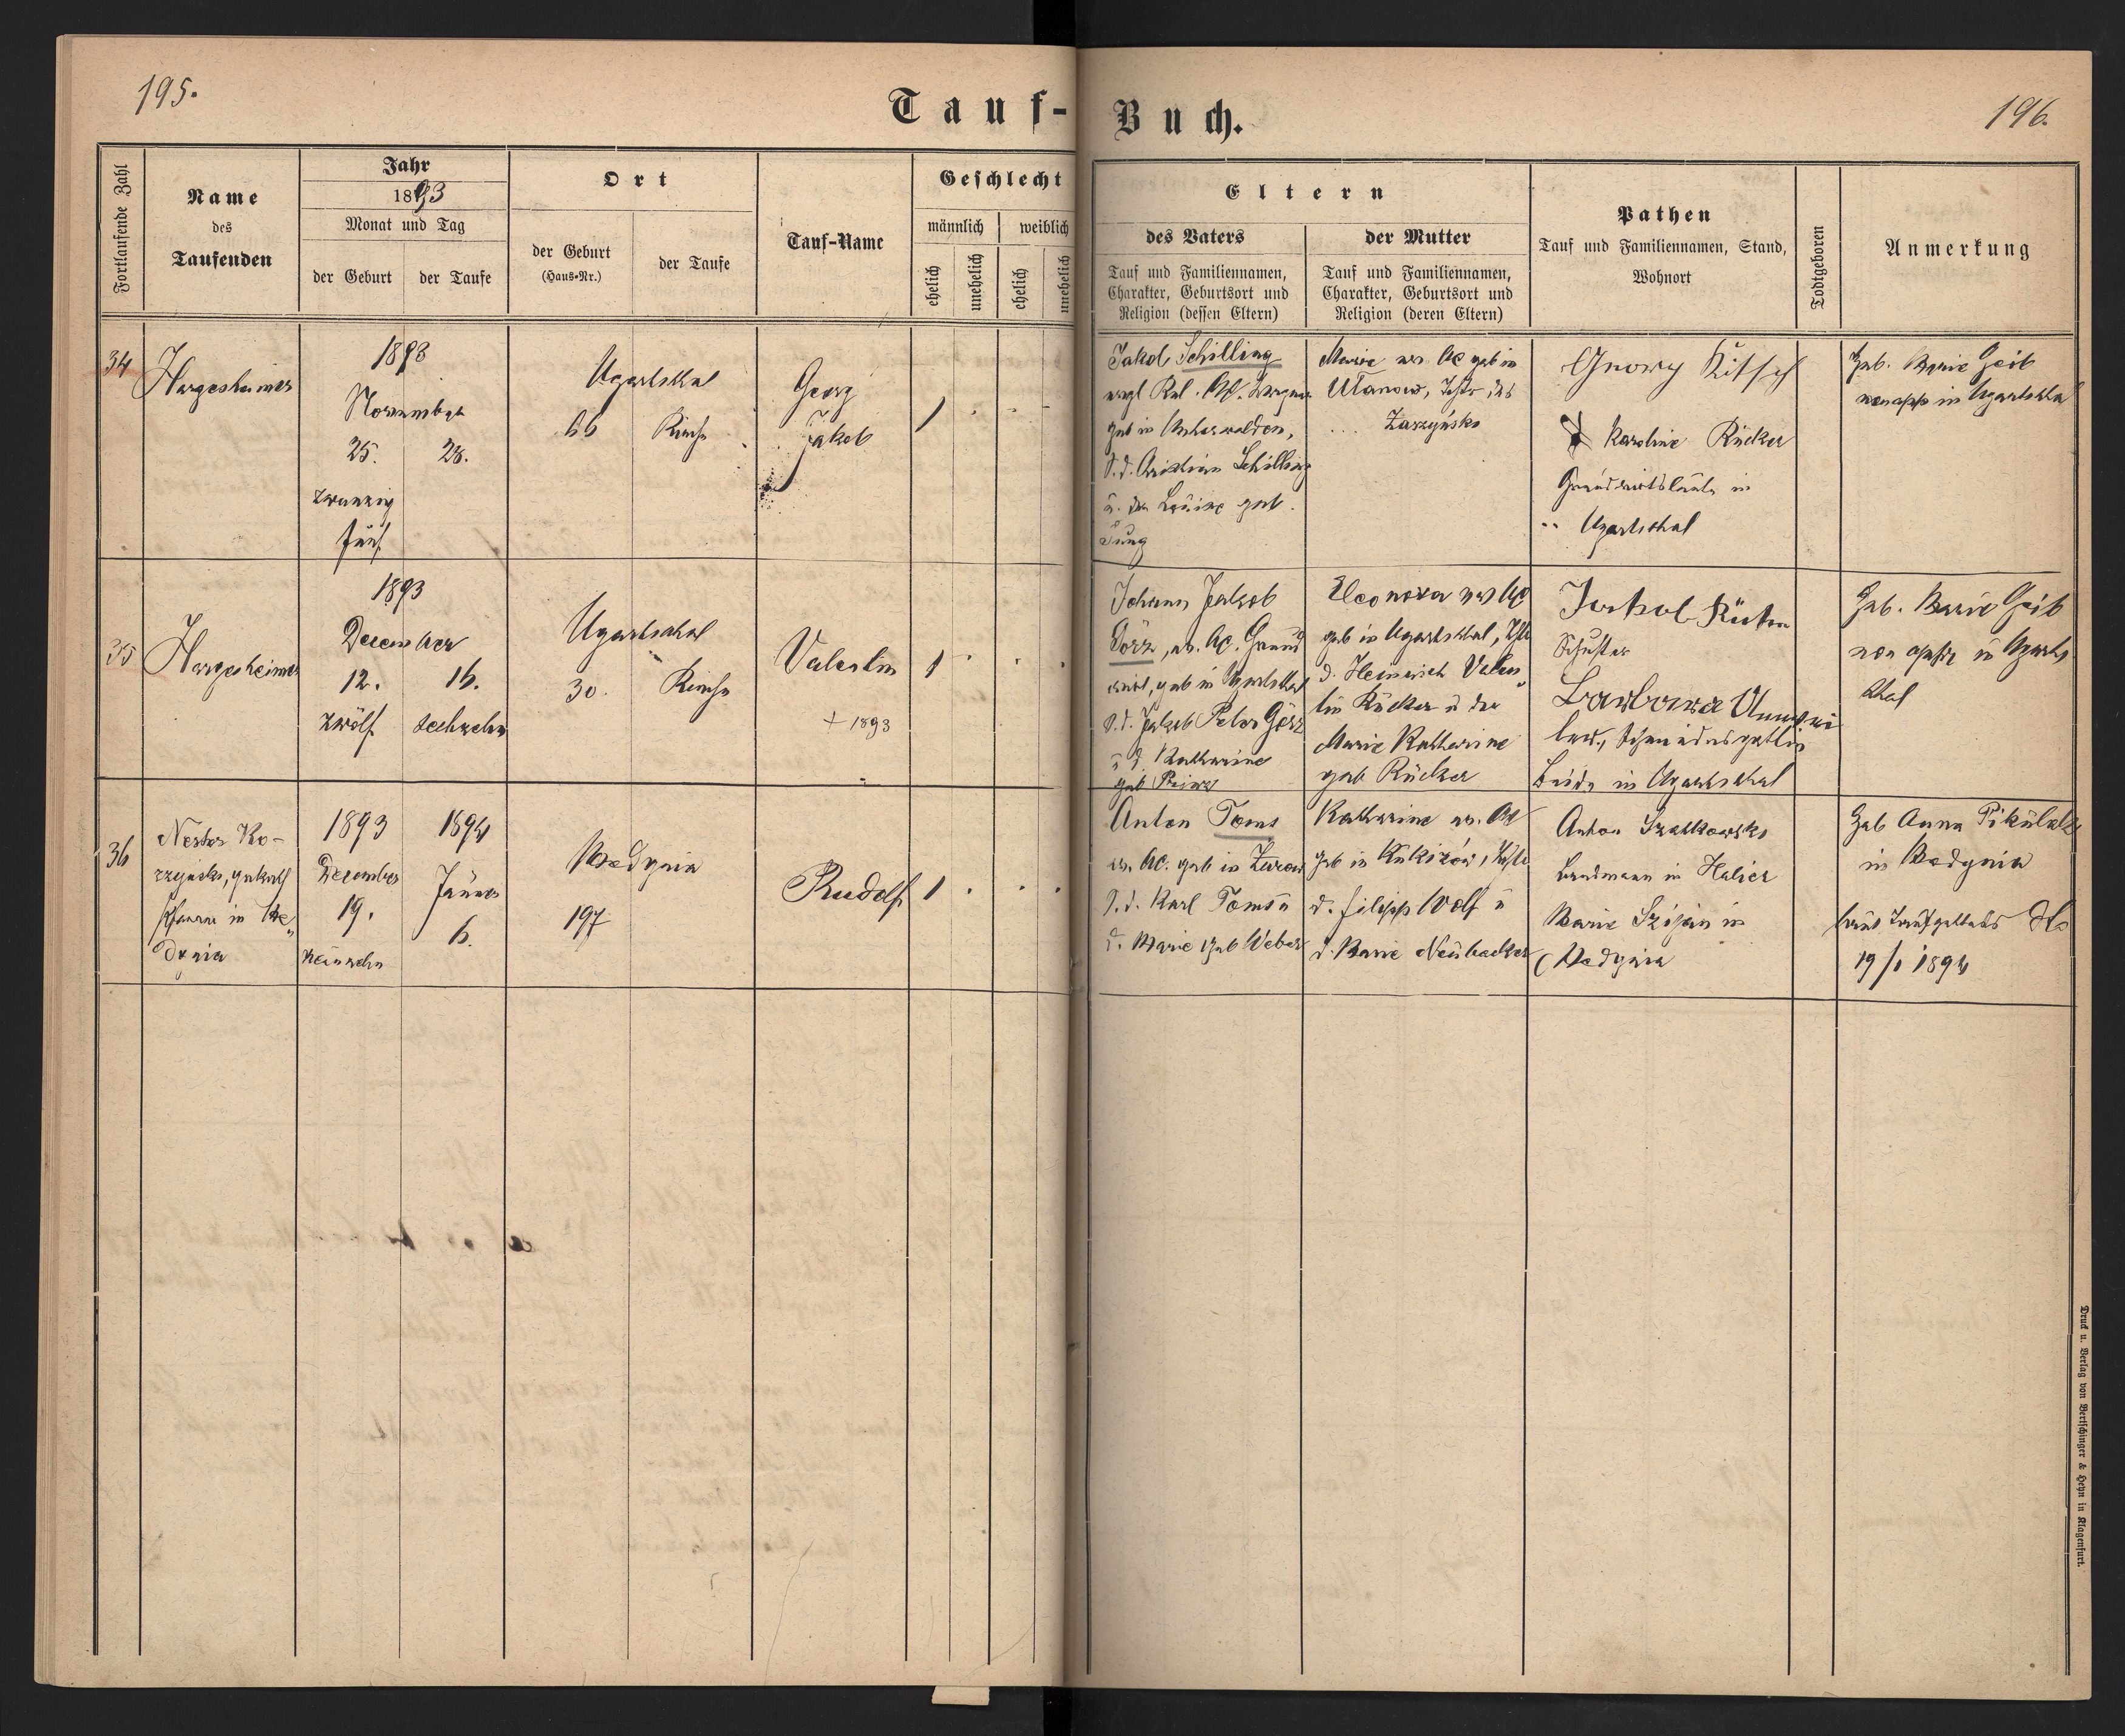 195.
196.
Tauf-Buch.
Fortlaufende Zahl
Name
des
Taufenden
Jahr
1893
Monat und Tag
der Geburt
der Taufe
Ort
der Geburt
(Haus-Nr.)
der Taufe
Tauf-Name
Geschlecht
männlich
weiblich
ehelich
unehelich
ehelich
unehelich
Eltern
des Vaters
Tauf und Familiennamen,
Charakter, Geburtsort und
Religion (dessen Eltern)
der Mutter
Tauf und Familiennamen,
Charakter, Geburtsort und
Religion (deren Eltern)
Pathen
Tauf und Familiennamen, Stand,
Wohnort
Todtgeboren
Anmerkung
34
Hargesheimer
1893
November
25.
28.
zwanzig
fünf
Ugartsthal
66
Kirche
Georg
Jakob
1
Jakob Schilling
geb in Unterwalden,
S. d. Christian Schilling
u. der Louise geb.
Jung
Marie ev. AC geb in
Ulanow, Tochter des
Zarzyński
Georg Kitsch
Karoline Rücker
Grundwirtsleute in
Ugartsthal
Heb. Marie Geib
in Ugartsthal
35
Hargesheimer
1893
December
12.
16.
zwölf
sechzehn
Ugartsthal
30.
Kirche
Valentin
+ 1893
1
Johann Jakob
Görz, ev. AC. Grund
wirt, geb in Ugartsthal
S. d. Jakob Peter Görz
u d. Katharine
geb
Eleonora ev AC
geb in Ugartsthal, Tochter
d. Heinrich Valen„
tin Rücker u der
Marie Katharine
geb Rücker
Jakob
Schuster
Barbara
Beide in Ugartsthal
Heb. Marie Geib
in Ugarts
thal
36
Nestor Ko-
rzyński, gr kath
Pfarrer in Me„
dynia
1893
December
19.
neunzehn
1894
Jänner
6.
Medynia
197
Rudolf
1
Anton Toms
ev. AC. geb in Zurow
S. d. Karl Toms u
d. Marie geb Weber
Katharine ev. AC
geb in Kukizów, Tochter
d. Filipp Wolf u
d. Marie Neubacher
Anton
Landmann in Halicz
Marie
Medynia
Heb Anna
in Medynia
19/1 1894
Druck u. Verlag von Bertschinger & Heyn in Klagenfurt.